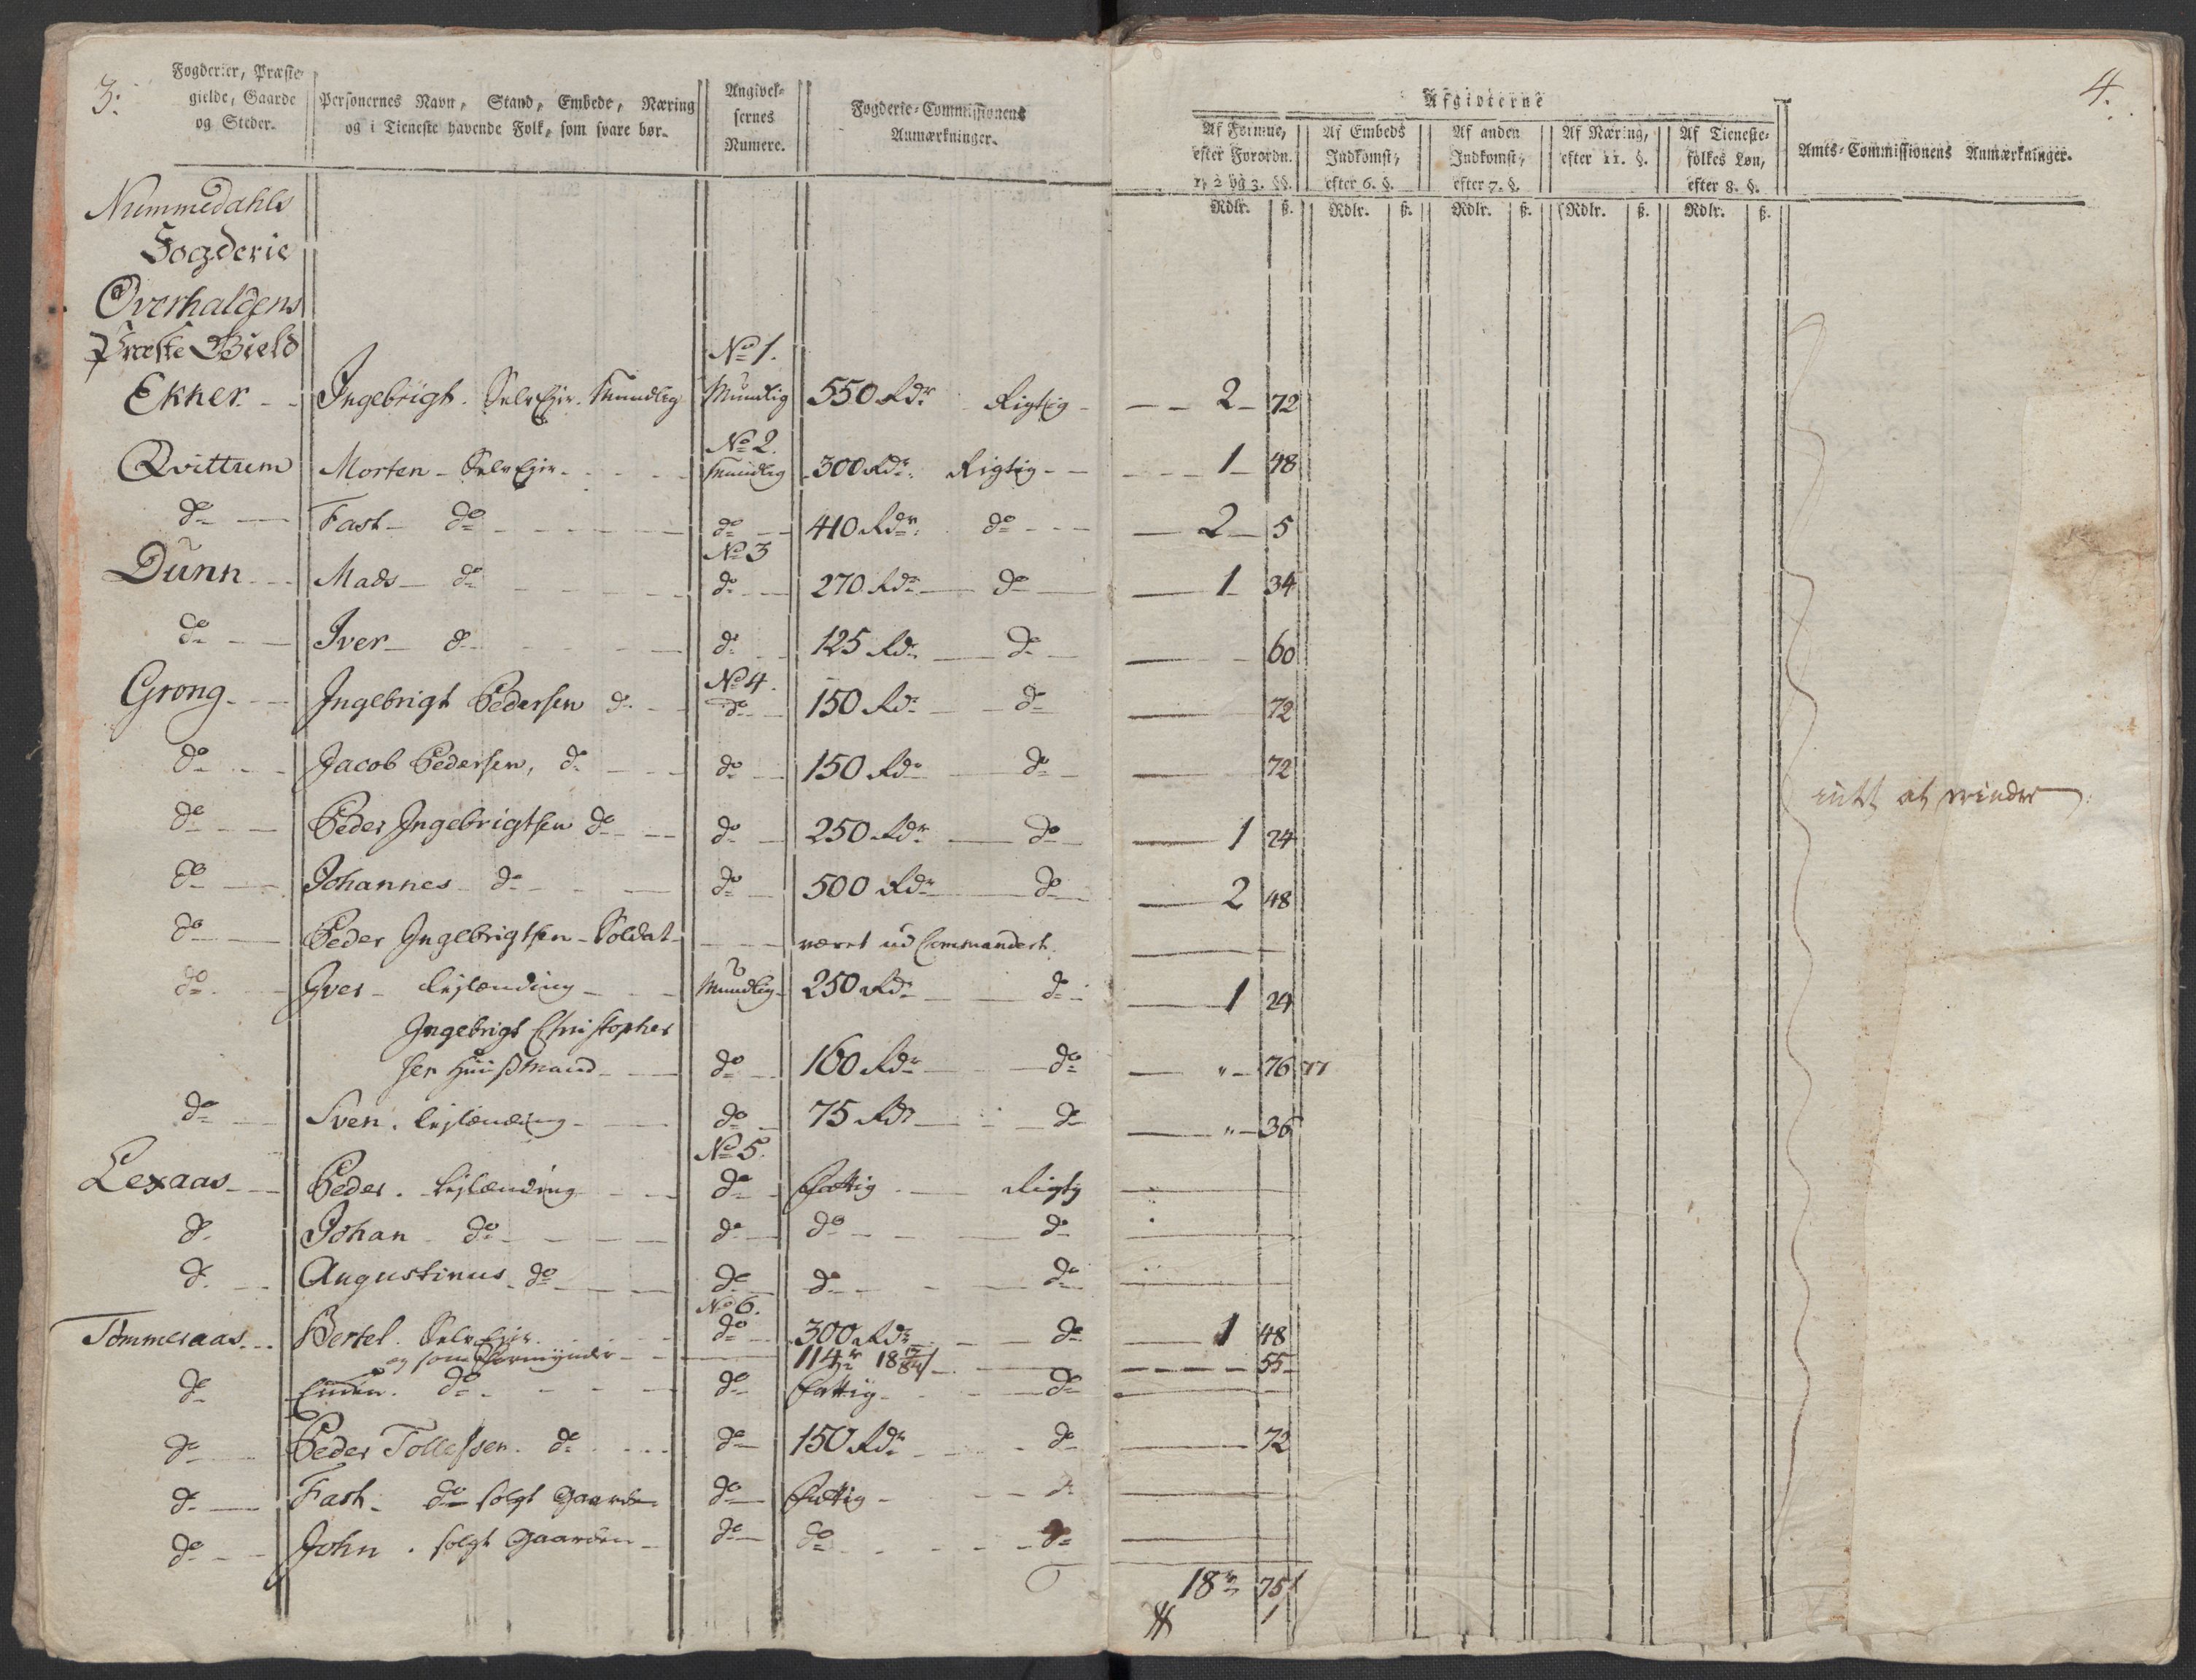 3.
Fogderier, Præste-
gielde, Gaarde
og Steder.
Personernes Navn, Stand, Embede, Næring
og i Tieneste havende Folk, som svare bør.
Angivel-
sernes
Numere.
Fogderie-Commissionens
Anmærkninger.
Nummedahls
Fogderie
Overhaldens
Præste Gield
No 1.
Ekner - - Ingebrigt. Selv Ejer. Mundlig Mundlig 550 Rdr. Rigtig -
No 2.
Qvittum Morten - Selv Ejer - Mundlig 300 Rdr. Rigtig - -
do Fast - do do 410 Rdr. do
No 3
Dunn Mads - do do 270 Rdr do
do Iver - do do 125 Rdr do
No 4.
Grong Ingebrigt Pedersen do do 150 Rdr do
do Jacob Pedersen, do do 150 Rdr do
do Peder Ingebrigtsen do do 250 Rdr do
do Johannes do do 500 Rdr do
do Peder Ingebrigtsen - Soldat - været ud Commandert.
do Iver - Lejlænding - Mundlig 250 Rdr do
Ingebrigt Christopher
sen Huusmand do 160 Rdr do
do Sven. Lejlænding - do 75 Rdr do
No 5.
Lexaas Peder. Lejlænding do Fattig Rigtig
do Johan do do do do
do Augustinus do do do do
No 6.
Tømmeraas Bertel. Selv Ejer. do 300 Rdr do
og som Formynder 114 r 18
do do do Fattig do
do Peder Tollefsen. do do 150 Rdr do
do Fast - do solgt Gaarden do Fattig - do
do John. solgt Gaarden do do do
4.
Afgivterne
Af Formue,
efter Forordn.
1, 2 og 3. §§.
Af Embeds
Indkomst,
efter 6. §.
Af anden
Indkomst,
efter 7. §.
Af Næring,
efter 11. §.
Af Tieneste-
folkes Løn,
efter 8. §.
Amts-Commissionens Anmærkninger.
Rdlr. ß. Rdlr. ß. Rdlr. ß. Rdlr. ß. Rdlr. ß.
2 - 72
1 - 48
2 - 5
1 - 34
60
72
72
1 24
2 48
1 24
" - 76 77
" - 36
1 48
55
72
18 r 75
intet at erindre